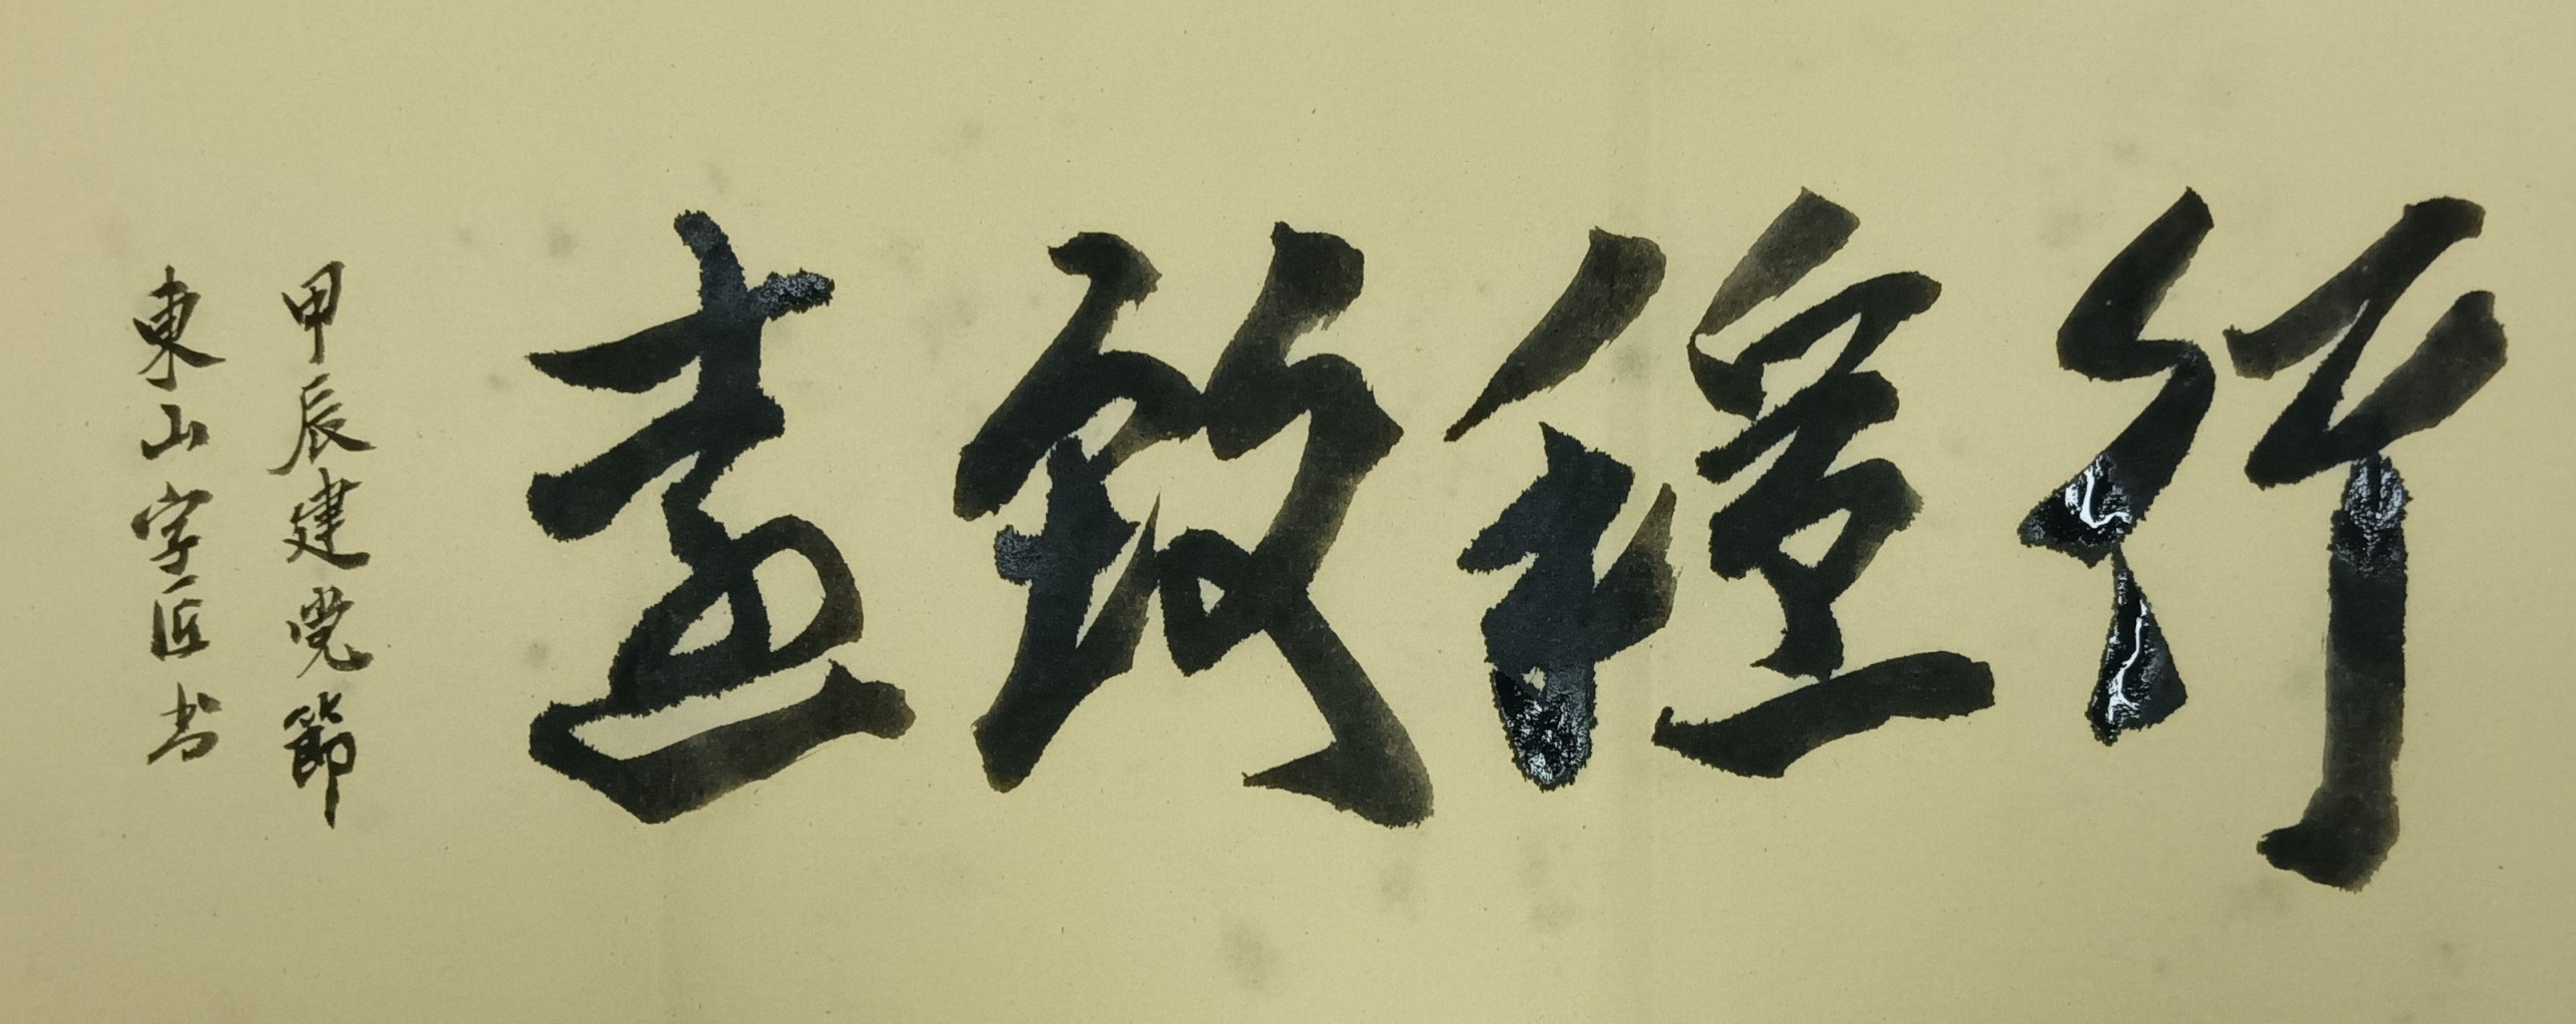 行穩致遠
甲辰建党節
東山字匠书